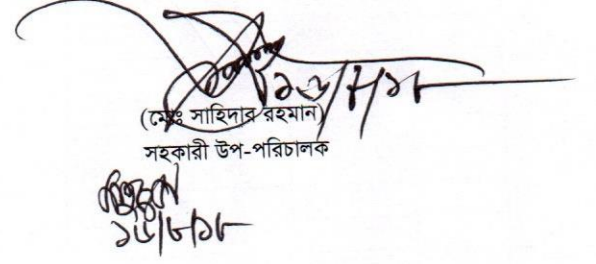 ১৬/৮/১৮
(মোঃ সাহিদার রহমান)
সহকারী উপ-পরিচালক
১৬/৮/১৮